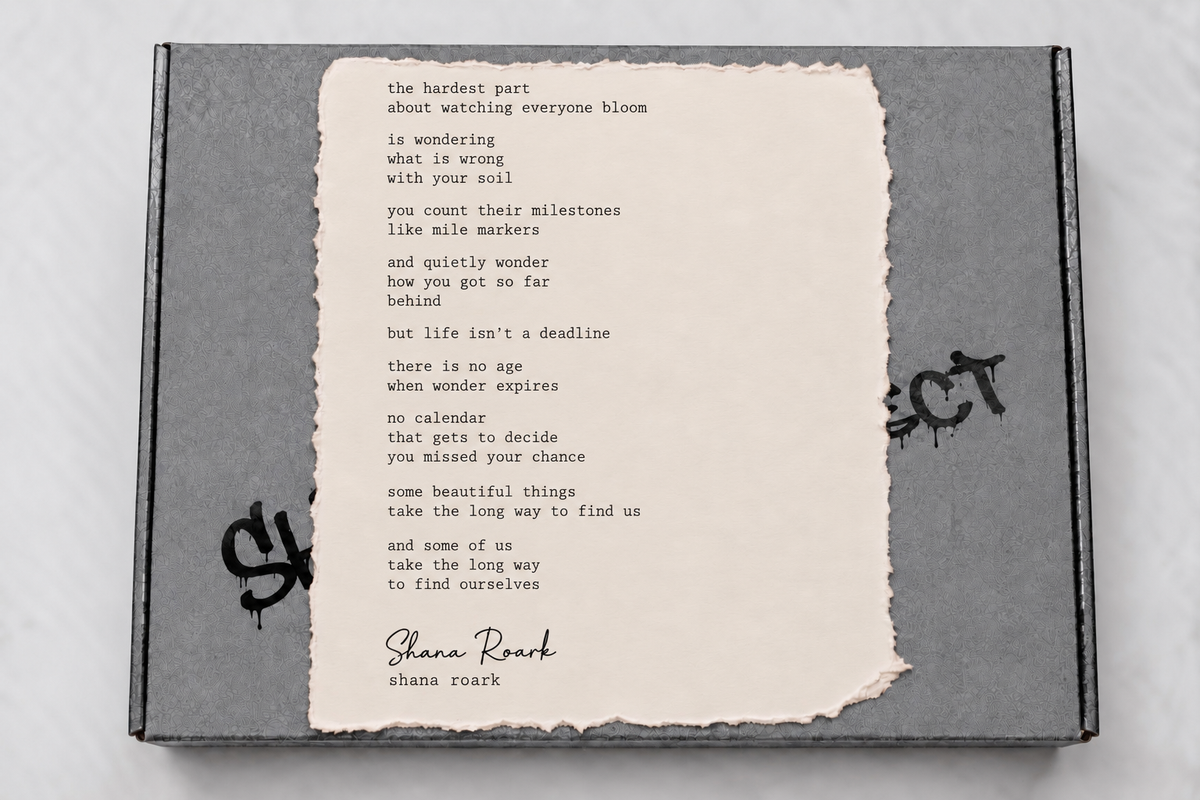 the hardest part
about watching everyone bloom
is wondering
what is wrong
with your soil
you count their milestones
like mile markers
and quietly wonder
how you got so far
behind
but life isn’t a deadline
there is no age
when wonder expires
no calendar
that gets to decide
you missed your chance
some beautiful things
take the long way to find us
and some of us
take the long way
to find ourselves
Shana Roark
shana roark